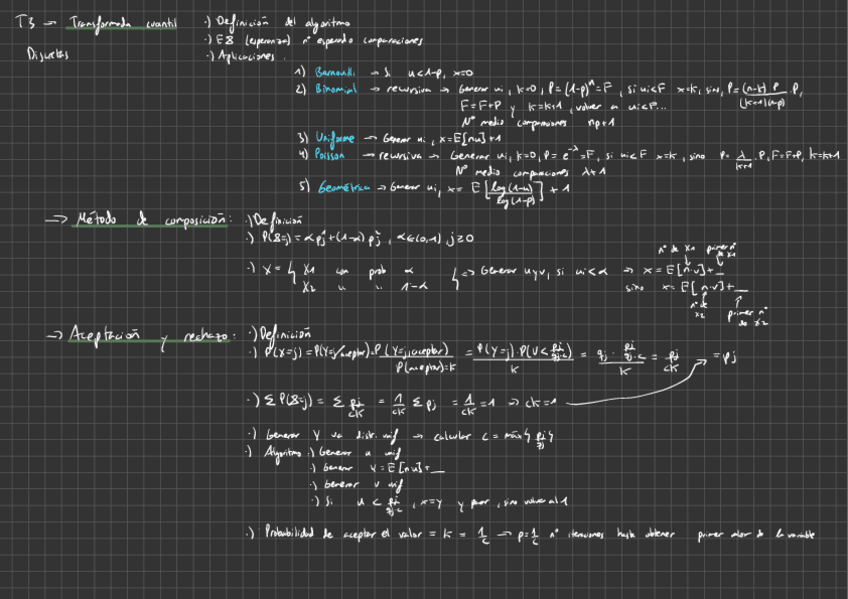 T3 → Transformada cuantil ·) Definición del algoritmo
·) E8 (esperanza) nº esperado comparaciones
Discretas ·) Aplicaciones:
1) Bernoulli → Si u<1-p, x=0
2) Binomial → recursiva → Generar ui, k=0, P=(1-p)^n=F, si ui<F x=k, sino, P=(n-k) p/(k+1)(1-p) · P,
F=F+P y k=k+1, volver a ui<F...
Nº medio comparaciones np+1
3) Uniforme → Generar ui, x=E[nu]+1
4) Poisson → recursiva → Generar ui, k=0, P=e^-λ=F, si ui<F x=k, sino P=λ/(k+1)·P, F=F+P, k=k+1
Nº medio comparaciones λ+1
5) Geométrica → Generar ui, x= E[log(1-u)/log(1-p)]+1
→ Método de composición: ·) Definición
·) P(X=j)=α pj¹+(1-α) pj², α∈(0,1), j≥0
nº de x1 primer nº de x1
·) X = { X1 con prob α } ⇒ Generar u y v, si u<α → x=E[n·v]+__
X2 " " 1-α sino x=E[n·v]+__
nº de x2 primer nº de x2
→ Aceptación y rechazo: ·) Definición
·) P(X=j)=P(Y=j/aceptar)=P(Y=j,aceptar)/P(aceptar)=k = P(Y=j)·P(U<pj/qj·c)/k = qj·pj/qj·c/k = pj/ck = pj
·) ΣP(X=j)= Σ pj/ck = 1/ck Σpj = 1/ck =1 → ck=1
·) Generar Y va distr. unif → calcular c=máx{pj/qj}
·) Algoritmo ·) Generar u unif
·) Generar Y=E[nu]+__
·) Generar v unif
·) Si u<pj/qj·c, x=y y parar, sino volver al 1
·) Probabilidad de aceptar el valor = k = 1/c → p=1/c nº iteraciones hasta obtener primer valor de la variable